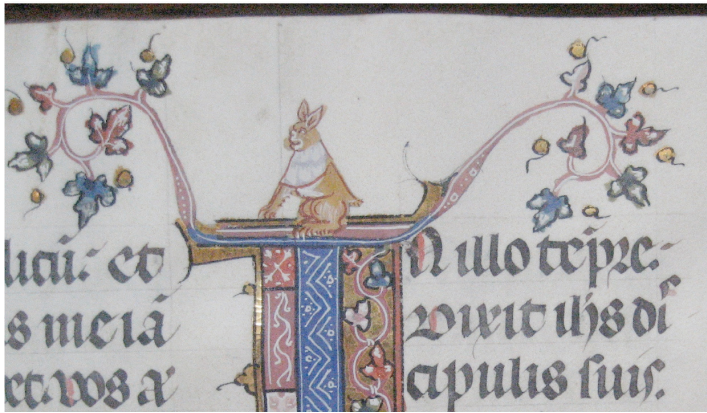 et
s meiā
et vos
N illo tēpre.
Dixit ihs diſ
cipulis ſuis.